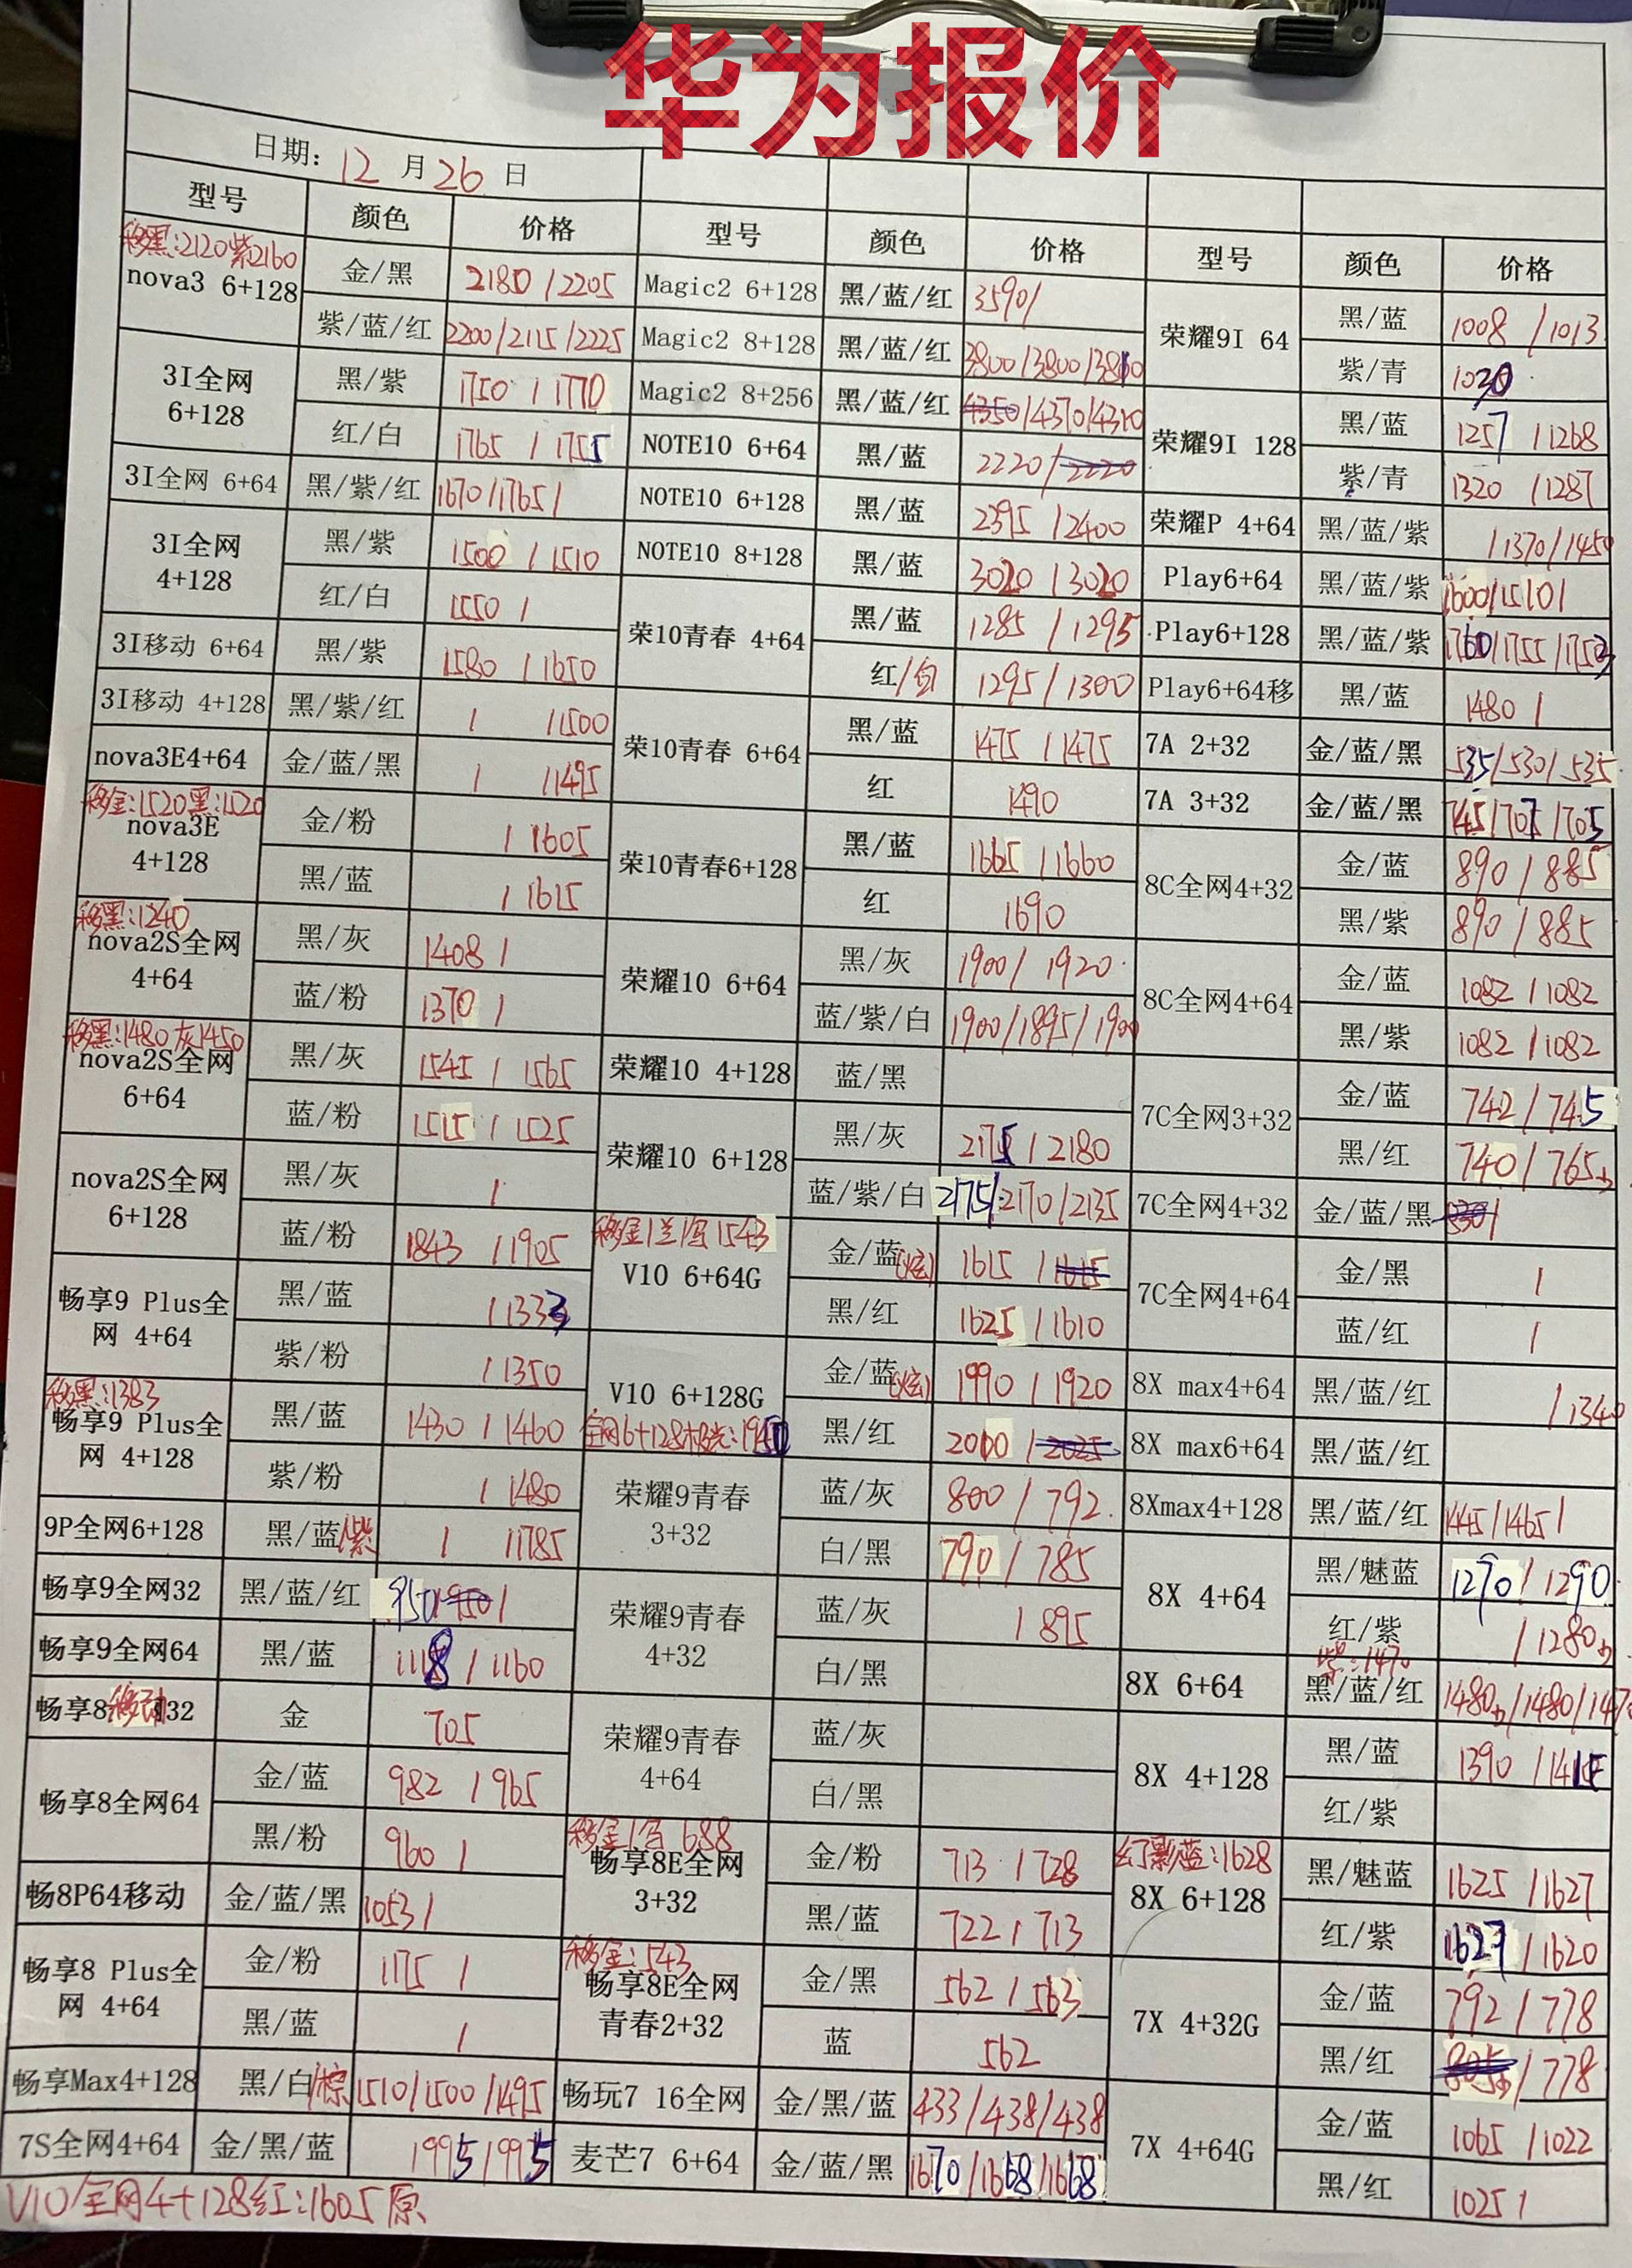 华为报价
日期: 12 月 26 日
型号 颜色 价格 型号 颜色 价格 型号 颜色 价格
移黑:2120紫2160
nova3 6+128 金/黑 2180 / 2205
紫/蓝/红 2200/2115/2225
3I全网 6+128 黑/紫 1750 / 1770
红/白 1765 / 1755
3I全网 6+64 黑/紫/红 1670/1765/
3I全网 4+128 黑/紫 1500 / 1510
红/白 1550 /
3I移动 6+64 黑/紫 1580 / 1650
3I移动 4+128 黑/紫/红 / /1500
nova3E4+64 金/蓝/黑 / /1495
移金:1520黑:1520
nova3E 4+128 金/粉 / 1605
黑/蓝 / 1615
移黑:1240
nova2S全网 4+64 黑/灰 1408 /
蓝/粉 1370 /
移黑:1480灰1450
nova2S全网 6+64 黑/灰 1545 / 1565
蓝/粉 1515 / 1525
nova2S全网 6+128 黑/灰 /
蓝/粉 1843 / 1905
畅享9 Plus全网 4+64 黑/蓝 / 1333
紫/粉 / 1350
移黑:1383
畅享9 Plus全网 4+128 黑/蓝 1430 / 1460
紫/粉 / 1480
9P全网6+128 黑/蓝/紫 / /1785
畅享9全网32 黑/蓝/红 950/950/
畅享9全网64 黑/蓝 1118 / 1160
畅享8移动32 金 705
畅享8全网64 金/蓝 982 / 965
黑/粉 960 /
畅8P64移动 金/蓝/黑 1053/
畅享8 Plus全网 4+64 金/粉 1175 /
黑/蓝 /
畅享Max4+128 黑/白/棕 1510/1500/1495
7S全网4+64 金/黑/蓝 1995/995
V10全网4+128红:1605原
Magic2 6+128 黑/蓝/红 3590/
Magic2 8+128 黑/蓝/红 3800/3800/3810
Magic2 8+256 黑/蓝/红 4350/4370/4310
NOTE10 6+64 黑/蓝 2220/2220
NOTE10 6+128 黑/蓝 2395 / 2400
NOTE10 8+128 黑/蓝 3020 / 3020
荣10青春 4+64 黑/蓝 1285 / 1295
红/白 1295 / 1300
荣10青春 6+64 黑/蓝 1475 / 1475
红 1490
荣10青春6+128 黑/蓝 1665 / 1660
红 1690
荣耀10 6+64 黑/灰 1900 / 1920
蓝/紫/白 1900/1895/1900
荣耀10 4+128 蓝/黑
荣耀10 6+128 黑/灰 2175 / 2180
蓝/紫/白 2175/2170/2135
移金/兰/ 1543
V10 6+64G 金/蓝(炫) 1615 / 1615
黑/红 1625 / 1610
V10 6+128G 金/蓝(炫) 1990 / 1920
全网6+128极光:1950
黑/红 2000 / 2025
荣耀9青春 3+32 蓝/灰 800 / 792
白/黑 790 / 785
荣耀9青春 4+32 蓝/灰 / 895
白/黑
荣耀9青春 4+64 蓝/灰
白/黑
移金/ 688
畅享8E全网 3+32 金/粉 713 / 728
黑/蓝 722 / 713
移金:543
畅享8E全网 青春2+32 金/黑 562 / 563
蓝 562
畅玩7 16全网 金/黑/蓝 433/438/438
麦芒7 6+64 金/蓝/黑 1670/1668/1668
荣耀9I 64 黑/蓝 1008 / 1013
紫/青 1030
荣耀9I 128 黑/蓝 1257 / 1268
紫/青 1320 / 1287
荣耀P 4+64 黑/蓝/紫 / 1370 / 1450
Play6+64 黑/蓝/紫 1600/1510/
Play6+128 黑/蓝/紫 1760/1755/1753
Play6+64移 黑/蓝 1480 /
7A 2+32 金/蓝/黑 535/530/535
7A 3+32 金/蓝/黑 745/707/705
8C全网4+32 金/蓝 890 / 885
黑/紫 890 / 885
8C全网4+64 金/蓝 1082 / 1082
黑/紫 1082 / 1082
7C全网3+32 金/蓝 742 / 745
黑/红 740 / 765
7C全网4+32 金/蓝/黑 830/
7C全网4+64 金/黑 /
蓝/红 /
8X max4+64 黑/蓝/红 / 1340
8X max6+64 黑/蓝/红
8Xmax4+128 黑/蓝/红 1445/1465/
8X 4+64 黑/魅蓝 1270 / 1290
红/紫 / 1280
紫:1470
8X 6+64 黑/蓝/红 1480/1480/147
8X 4+128 黑/蓝 1390 / 1415
红/紫
幻影蓝:1628
8X 6+128 黑/魅蓝 1625 / 1627
红/紫 1627 / 1620
7X 4+32G 金/蓝 792 / 778
黑/红 805 / 778
7X 4+64G 金/蓝 1065 / 1022
黑/红 1025 /